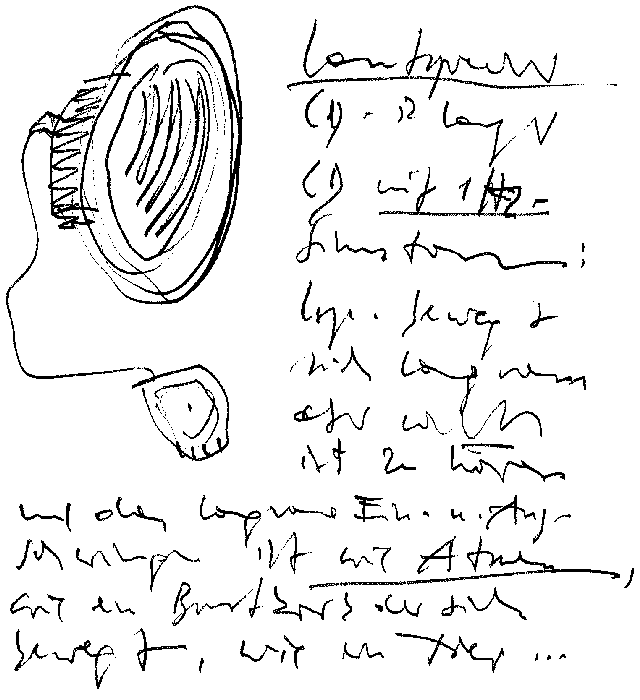 Lautsprecher
CD-Player
CD mit 1 Hz-
Sinuston:
bewegt
sich langsam
aber nichts
ist zu hören
und das langsame Ein- u. Aus-
schwingen ist wie Atmen,
wie ein Brustkorb der sich
bewegt, wie ein Tier ...